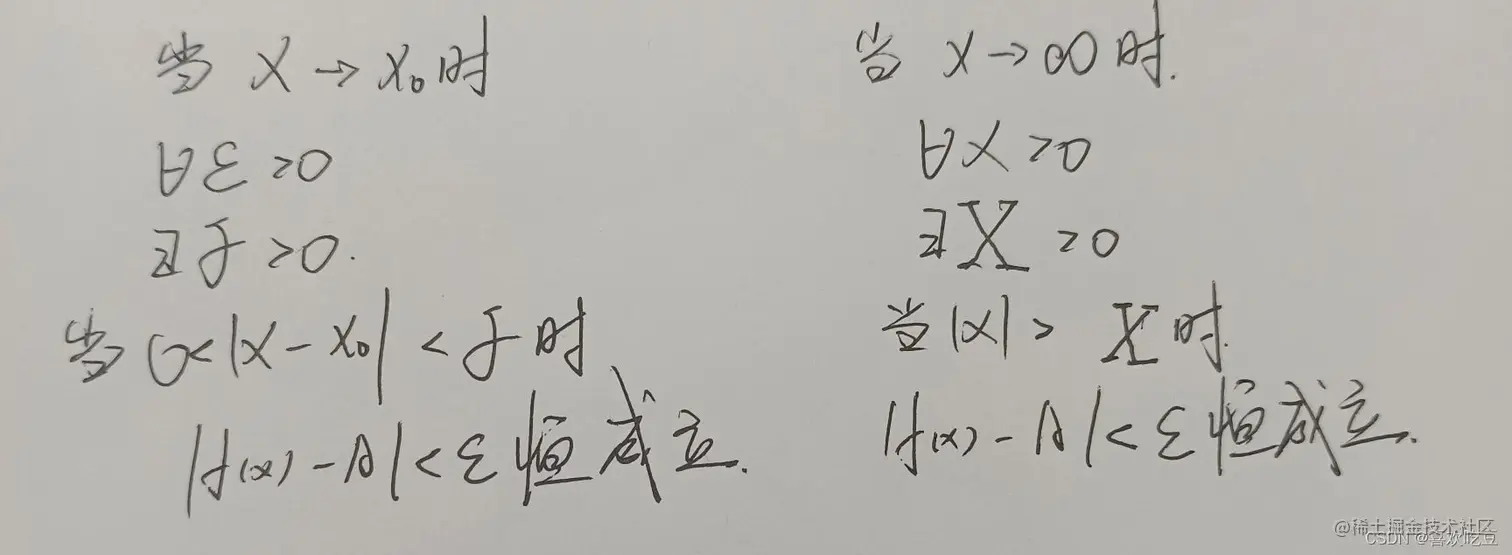 当 x → x₀ 时
∀ε >0
∃δ >0.
当 0<|x - x₀| < δ 时
|f(x) - A| < ε 恒成立.
当 x → ∞ 时.
∀x >0
∃X >0
当|x| > X 时.
|f(x) - A| < ε 恒成立.
@稀土掘金技术社区
CSDN @喜欢吃豆